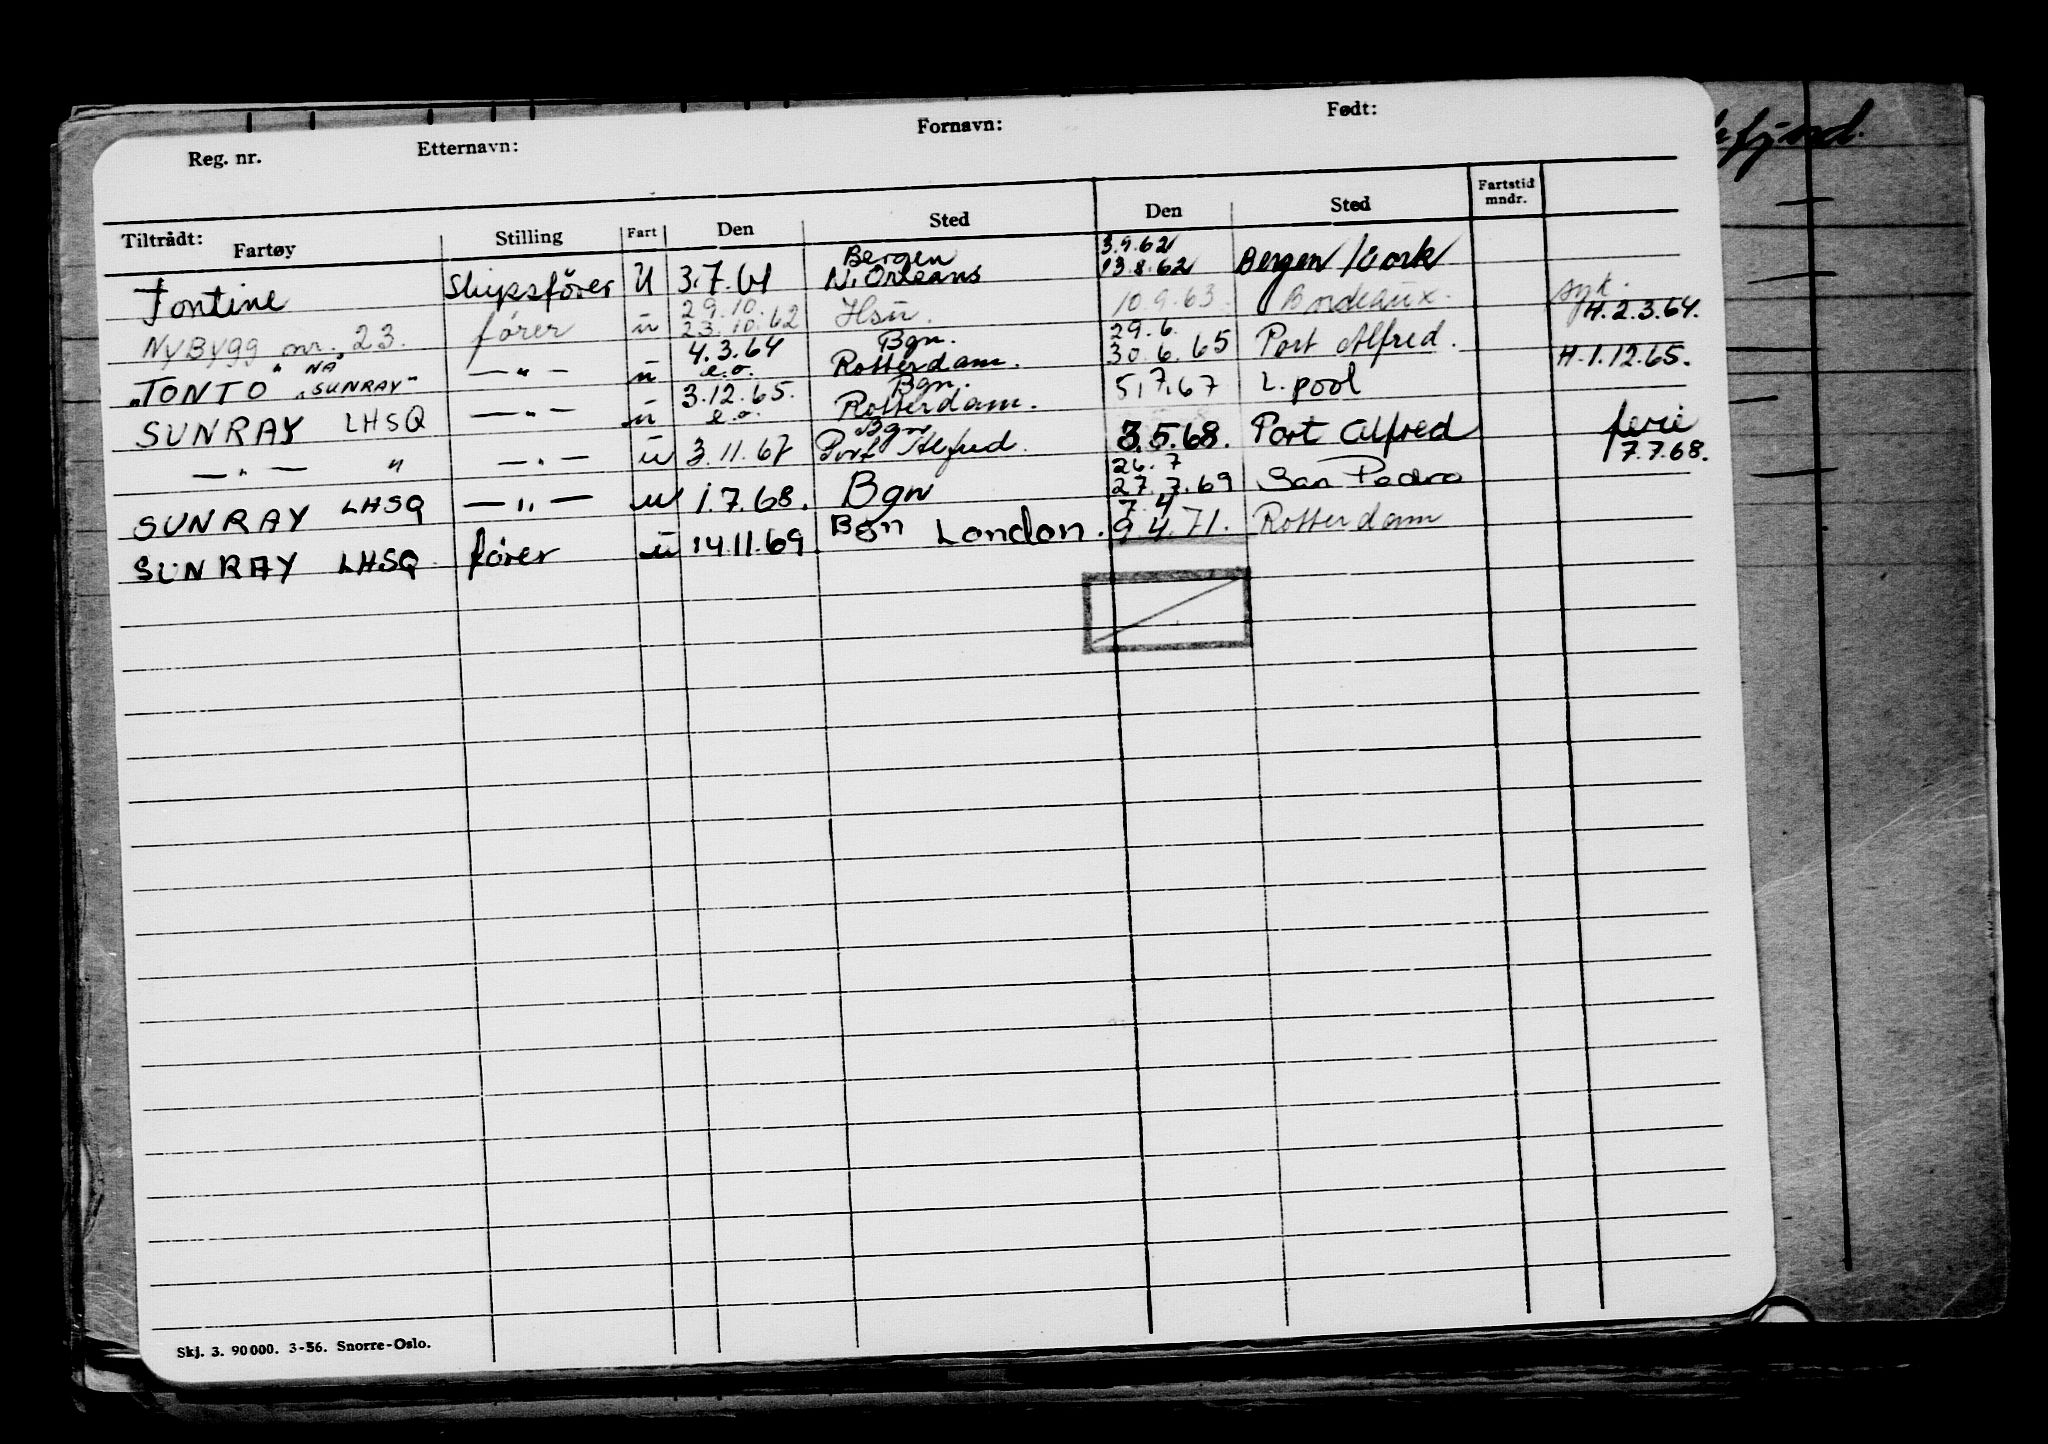 Reg. nr. Etternavn: Fornavn: Født:
Tiltrådt: Fartøy Stilling Fart Den Sted Den Sted Fartstid mndr.
Tontine Skipsfører U 3.7.61 Bergen N. Orleans 3.9.62 13.8.62 Bergen / Cork
Nybygg nr. 23. fører u 29.10. 23.10.62 Hsu. 10.9.63. Bordeaux. syk. H. 2.3.64.
"TONTO" NÅ "SUNRAY" —"— u 4.3.64 e.o. Bgn. Rotterdam. 29.6. 30.6.65 Port Alfred. H. 1.12.65.
SUNRAY LHSQ —"— u 3.12.65. e.o. Bgn. Rotterdam. 5.7.67 L.pool
—"— " —"— u 3.11.67 Bgn Port Alfred. 3.5.68. Port Alfred ferie 7.7.68.
SUNRAY LHSQ —"— u 1.7.68. Bgn 26.7 27.7.69 San Pedro
SUNRAY LHSQ fører u 14.11.69. Bgn London. 7.4 9.4.71. Rotterdam
Skj. 3. 90000. 3-56. Snorre-Oslo.